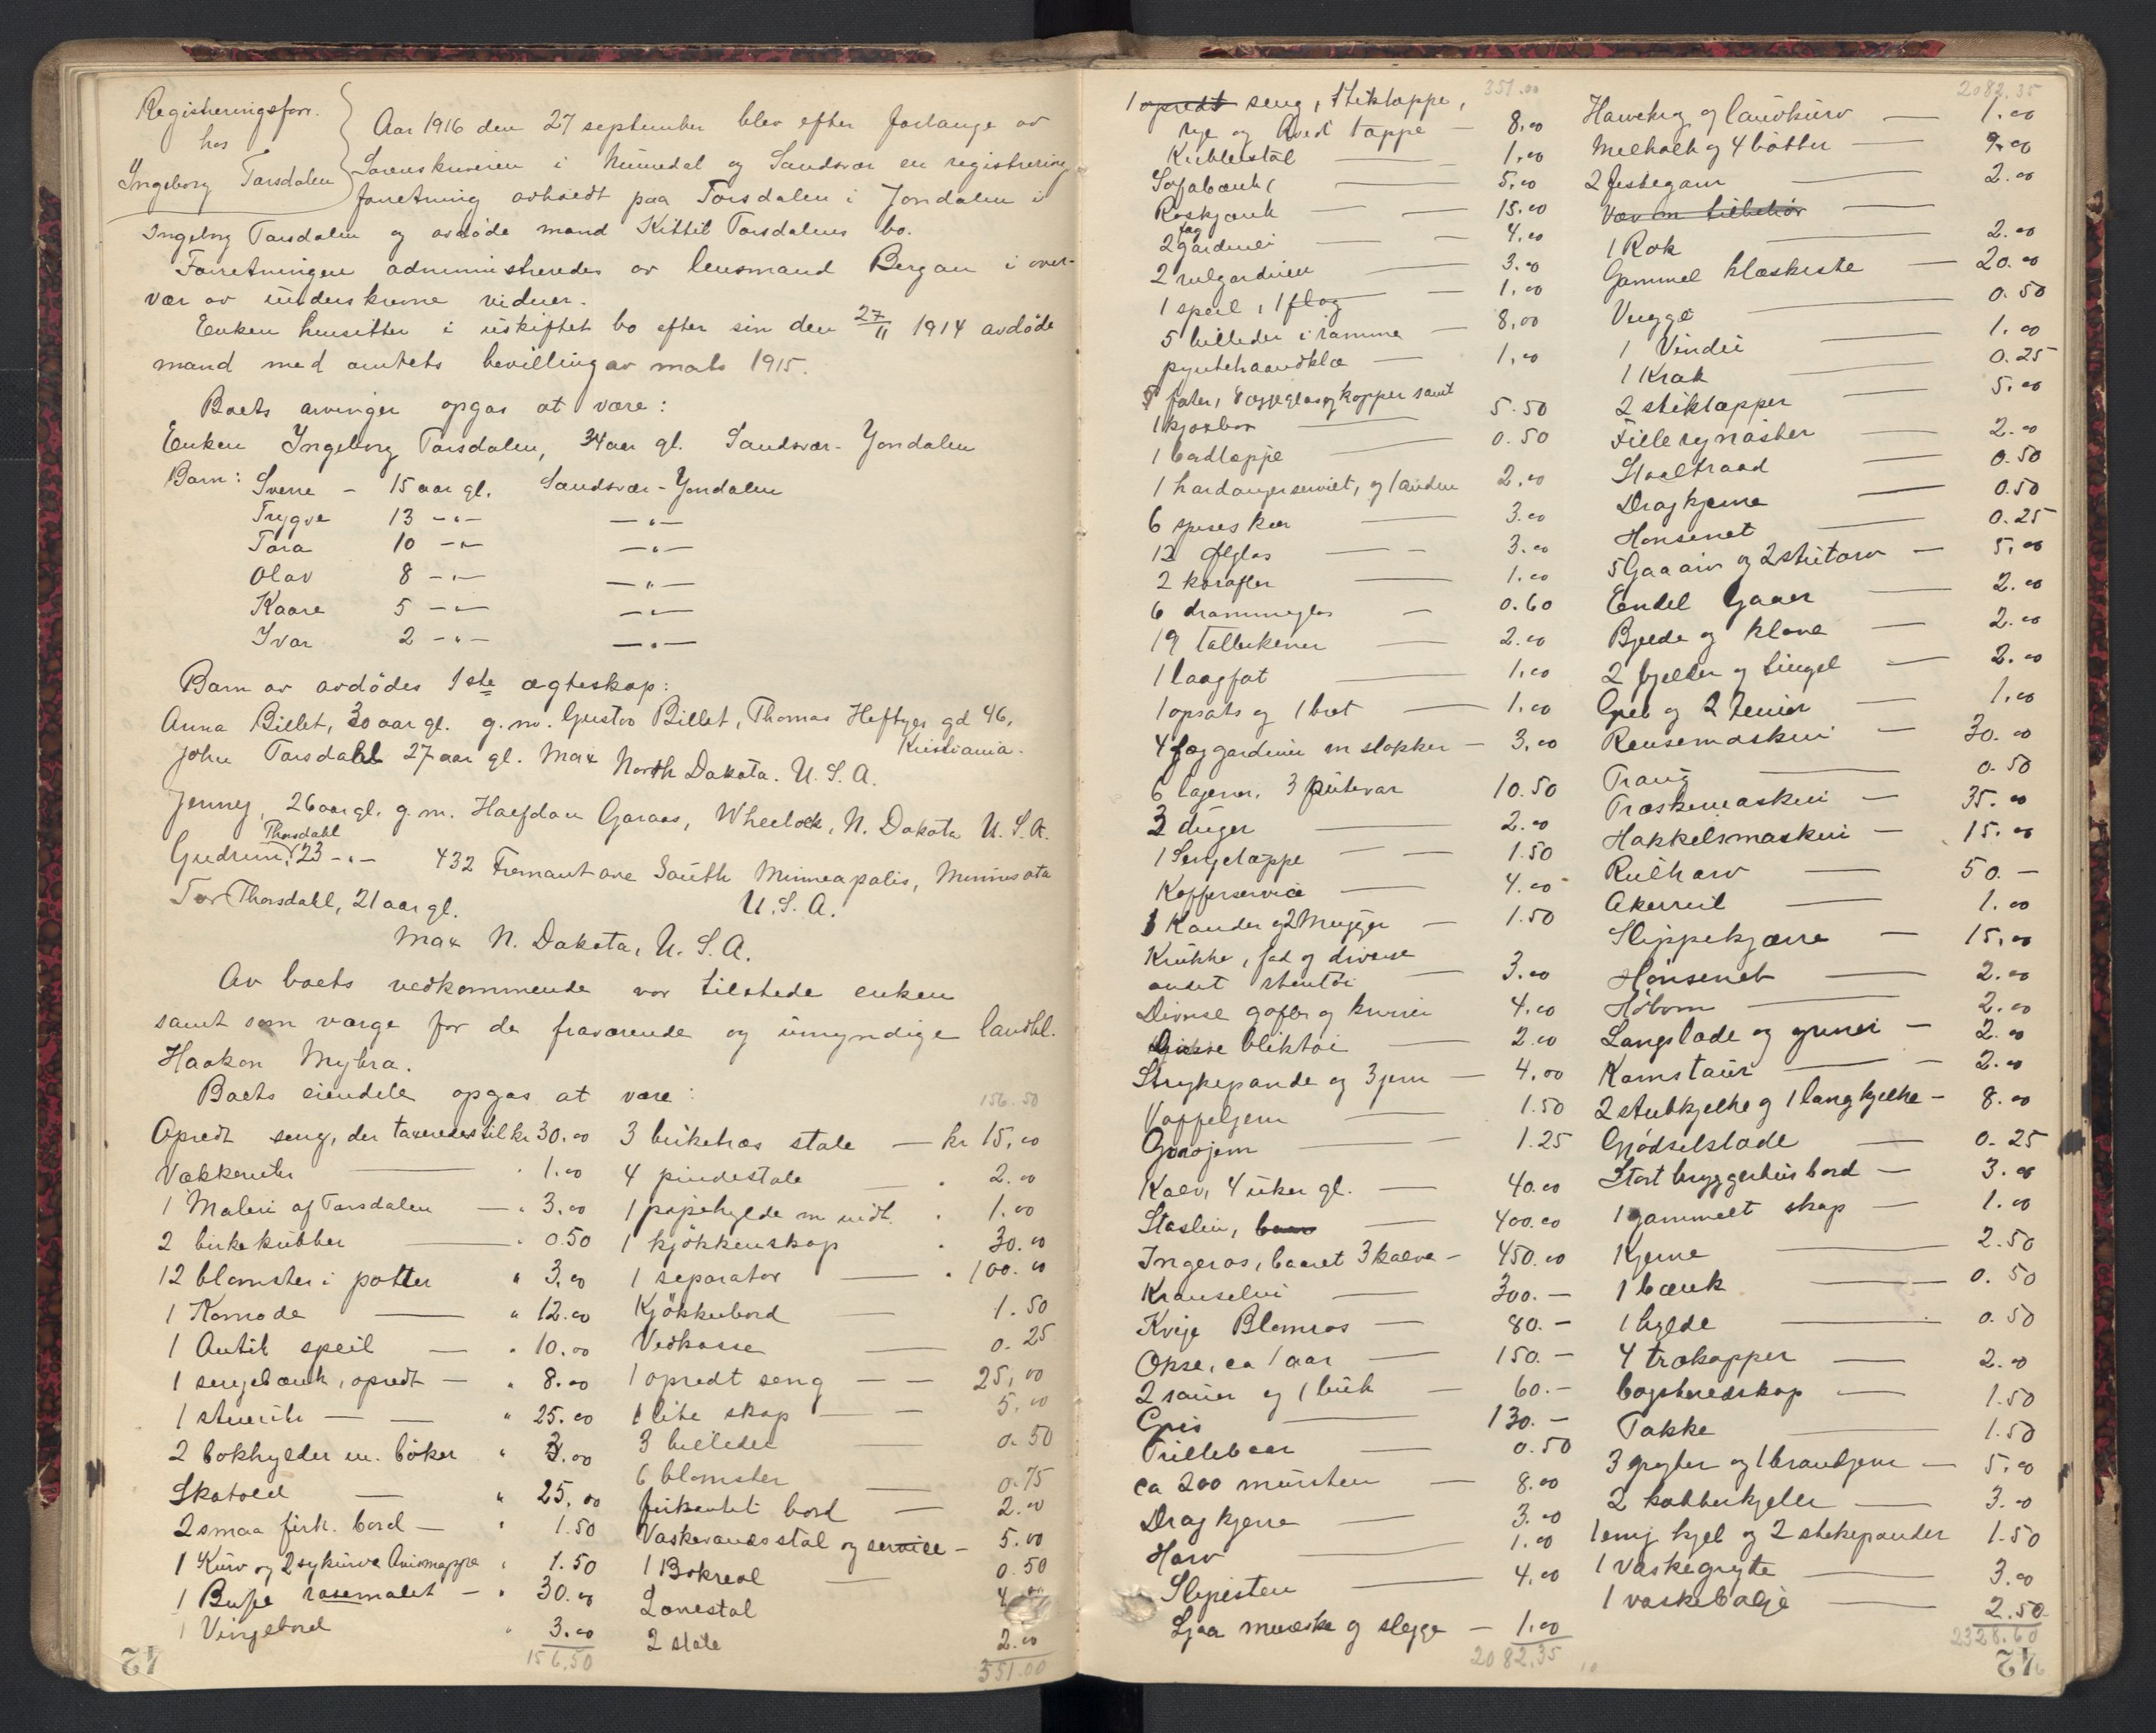 Registreringsforr.
hos
Ingeborg Torsdalen
Aar 1916 den 27 september blev efter forlange av
Sorenskriveren i Numedal og Sandsvær en registrerings
forretning avholdt paa Torsdalen i Jondalen i
Ingeborg Torsdalen og avdöde mand Kittil Torsdalens bo.
Forretningen administreredes av lensmand Bergan i over-
vær av underskrevne vidner.
Enken hensitter i uskiftet bo efter sin den 27/11 1914 avdöde
mand med amtets bevilling av mats 1915.
Boets arvinger opgas at være:
Enken Ingeborg Torsdalen, 34 aar gl. Sandsvær-Jondalen
Barn: Sverre - 15 aar gl. Sandsvær-Jondalen
Trygve 13 -"- -"-
Tora 10 -"- -"-
Olav 8 -"- -"-
Kaare 5 -"- -"-
Ivar 2 -"- -"-
Barn av avdödes 1ste ægteskap:
Anna Billet, 30 aar gl. g.m. Gustav Billet, Thomas Heftyes gd 46,
Kristiania.
John Torsdahl 27 aar gl. Max North Dakota. U.S.A.
Jenney, 26 aar gl. g.m. Halfdan Garaas, Wheelock, N. Dakota U.S.A.
Gudrun Thorsdahl, 23 -"- 432 Fremont ave South Minneapolis, Minnesota
U.S.A.
Tor Thorsdahl, 21 aar gl.
Max N. Dakota, U.S.A.
Av boets vedkommende var tilstede enken
samt som værge for de fraværende og umyndige landhl.
Haakon Myhra.
Boets eiendele opgas at være:
Opredt seng, der taxeredes til kr 30.00
Vækkeruhr 1.00
1 Maleri af Torsdalen - " 3.00
2 birkekubber " 0.50
12 blomster i potter " 3.00
1 Komode " 12.00
1 Antik speil - " 10.00
1 sengebænk, opredt - " 8.00
1 stueuhr - - " 25.00
2 bokhylder m. böker " 3.00
Skatoll - " 25.00
2 smaa firk. bord - " 1.50
1 Kurv og 2 sykurve Avismappe " 1.50
1 Buffe rosemalet - " 30.00
1 Vingebord " 3.00
156.50
42
156.50
3 birketræs stole - kr 15.00
4 pindestole - " 2.00
1 pipehylde m vidt. " 1.00
1 kjökkenskap " 30.00
1 separator - " 100.00
Kjökkenbord - 1.50
Vedkasse - 0.25
1 opredt seng - - 25.00
1 lite skap - - 5.00
3 billeder - 0.50
6 blomster - 0.75
firkantet bord - 2.00
Vaskevandsstol og service - 5.00
1 Bokreol - 0.50
2 stole 2.00
351.00
351.00
1 opredt seng, 1 stiktæppe,
rye og Aved tæppe - 8.00
Kubbestol - 1.00
Sofabænk - 5.00
Roskjænk - - 15.00
2 fag gardiner - - 4.00
2 rulgardiner - 3.00
1 speil, 1 flag - 1.00
5 billeder i ramme - 8.00
pyntehaandklæ - 1.00
5 fater, 8 æggeglas og kopper samt
1 kjøkbor - 5.50
1 bordtæppe - 0.50
1 hardangerserviet, og 1 anden 2.00
6 spiseskær - 3.00
12 ølglas - - 3.00
2 karafler - 1.00
6 drammeglas - 0.60
19 tallerkener - 2.00
1 laagfat - 1.00
1 opsats og 1 bret - 1.00
4 fag gardiner m stokker - 3.00
6 lagener. 3 putevar 10.50
3 duger - 2.00
1 Sengetæppe - - 1.50
Kaffeservice - 4.00
1 Kander og 2 Mugger - 1.50
Krukke, fad og diverse
andet stentöi - 3.00
Diverse gafler og kniver 4.00
Diverse bliktöi - 2.00
Strykepande og 3 jern - 4.00
Vaffeljern - 1.50
Gorojern - - 1.25
Kalv, 4 uker gl. - 40.00
Staslin, - 400.00
Ingeros, baaret 3 kalve - 450.00
Kranselin - 300.-
Kvige Blomros - 80.-
Okse, ca 1 aar - 150.-
2 sauer og 1 buk - 60.-
Gris - 130.-
Trillebaar - 0.50
ca 200 mursten - 8.00
Dragkjerre - 3.00
Harv - 1.00
Slipesten - 4.00
Ljaa og slegge - 1.00
2082.35
2082.35
Havekrg og laudkurv - 1.00
Melholk og 4 bötter - 9.00
2 festegarn - 2.00
Væv m tilbehör -
1 Rok - 2.00
Gammel klæskiste - 20.00
Vugge - 0.50
1 Vinde - 1.00
1 Krak - 0.25
2 stiktæpper - 5.00
Fillerymaster - 2.00
Staaltraad - 0.50
Dragkjerne - 0.50
Hönsenet - 0.25
5 Gaaarv og 2 stutorv - 5.00
Endel Gaaer - 2.00
Bjelde og klove - 2.00
2 bjelder og tingel - 2.00
Greb og 2 - 1.00
Rensemaskin - 30.00
Traug - 0.50
Træskemaskin - 35.00
Hakkelsmaskin - 15.00
Rulharv - 50.-
Akerreil - 1.00
Slippekjærre - 15.00
Hönsenet - 2.00
Höbom - 2.00
Langslade og gruner - 2.00
Kornstaur - - 2.00
2 stutkjelke g 1 langkjelke - 8.00
Gjödselslade - 0.25
Stort bryggerhus bord - 3.00
1 gammelt skap - 1.00
Kjerne - 2.50
1 bænk - 0.50
1 hylde - 0.50
4 trækopper - 2.00
bagsteredskap - 1.50
Takke - 1.50
3 gryter og 1 brandjern - 5.00
2 kobberkjeler - 3.00
1 emj kjel og 2 stekepander 1.50
1 vaskegryte - 3.00
1 vaskebalje - 2.50
2328.60
42